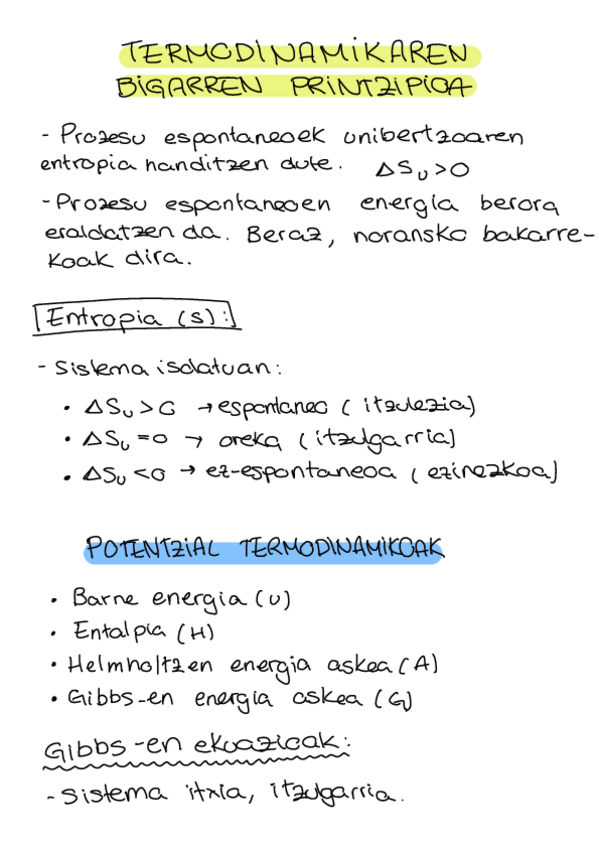 TERMODINAMIKAREN
BIGARREN PRINTZIPIOA
- Prozesu espontaneoek unibertzoaren
entropia handitzen dute. ΔSᵤ>0
- Prozesu espontaneoen energia berora
eraldatzen da. Beraz, noransko bakarre-
koak dira.
Entropia (S):
- Sistema isolatuan:
• ΔSᵤ>0 → espontaneo (itzulezia)
• ΔSᵤ=0 → oreka (itzulgarria)
• ΔSᵤ<0 → ez-espontaneoa (ezinezkoa)
POTENTZIAL TERMODINAMIKOAK
• Barne energia (U)
• Entalpia (H)
• Helmholtzen energia askea (A)
• Gibbs-en energia askea (G)
Gibbs-en ekuazioak:
- Sistema itxia, itzulgarria.